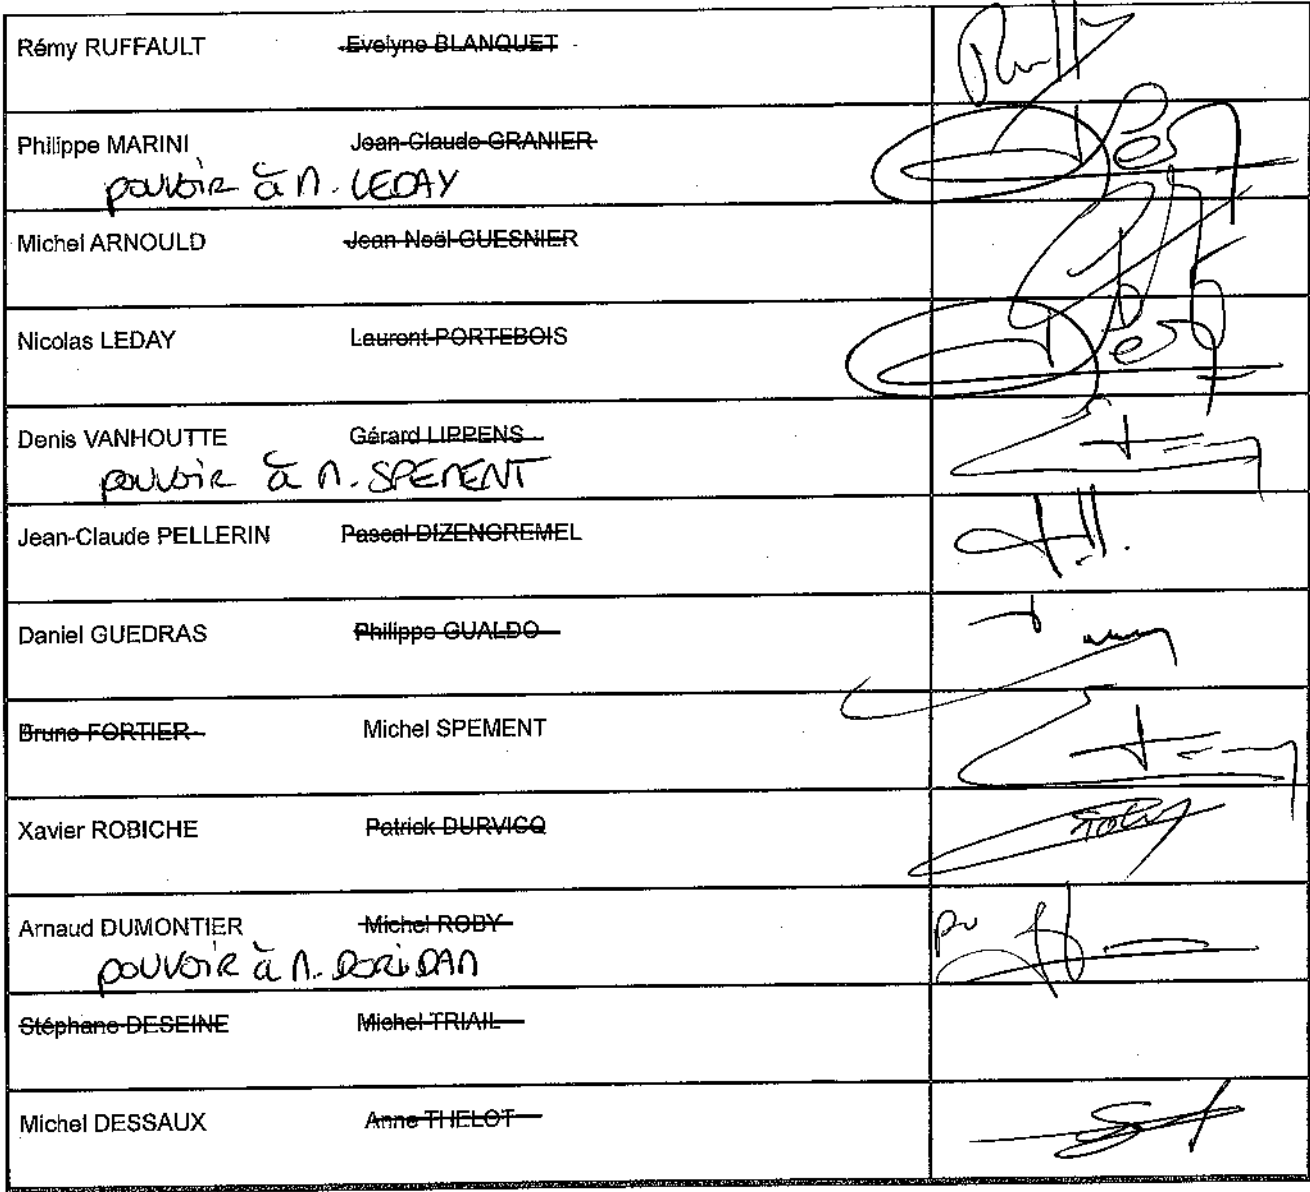 Rémy RUFFAULT Evelyne BLANQUET
Philippe MARINI Jean-Claude GRANIER
pouvoir à M. LEDAY
Michel ARNOULD Jean-Noël GUESNIER
Nicolas LEDAY Laurent PORTEBOIS
Denis VANHOUTTE Gérard LIPPENS
pouvoir à M. SPEMENT
Jean-Claude PELLERIN Pascal DIZENGREMEL
Daniel GUEDRAS Philippe GUALDO
Bruno FORTIER Michel SPEMENT
Xavier ROBICHE Patrick DURVICQ
Arnaud DUMONTIER Michel ROBY
pouvoir à M. DORIDAN
Stéphane DESEINE Michel TRIAIL
Michel DESSAUX Anne THELOT